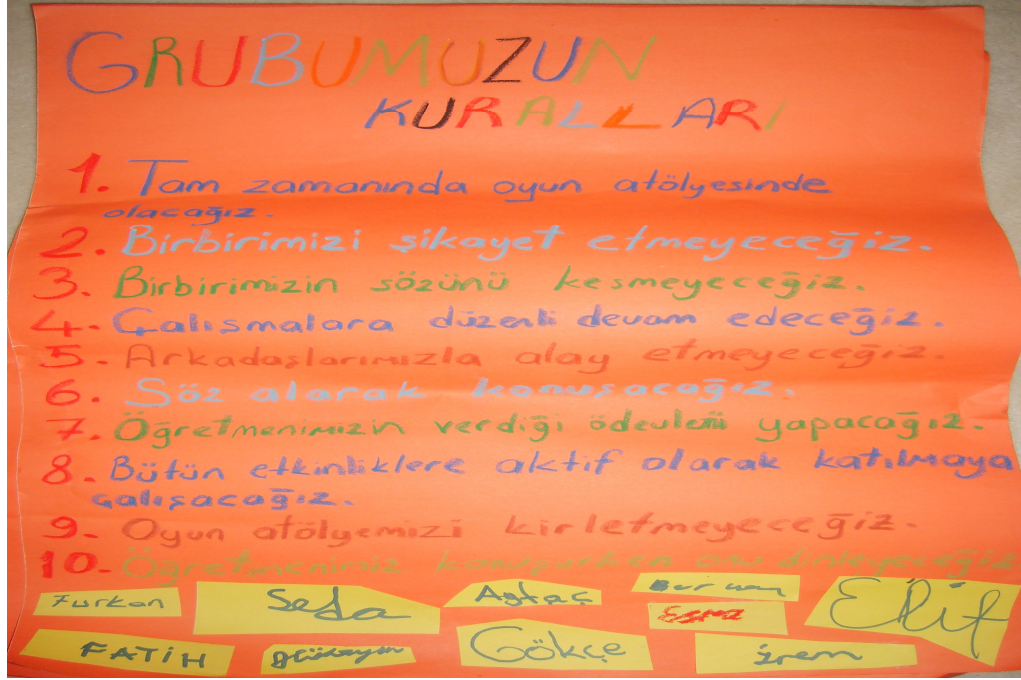 GRUBUMUZUN
KURALLARI
1. Tam zamanında oyun atölyesinde
olacağız.
2. Birbirimizi şikayet etmeyeceğiz.
3. Birbirimizin sözünü kesmeyeceğiz.
4. Çalışmalara düzenli devam edeceğiz.
5. Arkadaşlarımızla alay etmeyeceğiz.
6. Söz alarak konuşacağız.
7. Öğretmenimizin verdiği ödevleri yapacağız.
8. Bütün etkinliklere aktif olarak katılmaya
çalışacağız.
9. Oyun atölyemizi kirletmeyeceğiz.
10. Öğretmenimiz konuşurken onu dinleyeceğiz
Furkan Seda Aytaç Esma Elif
FATİH Gökçe İrem